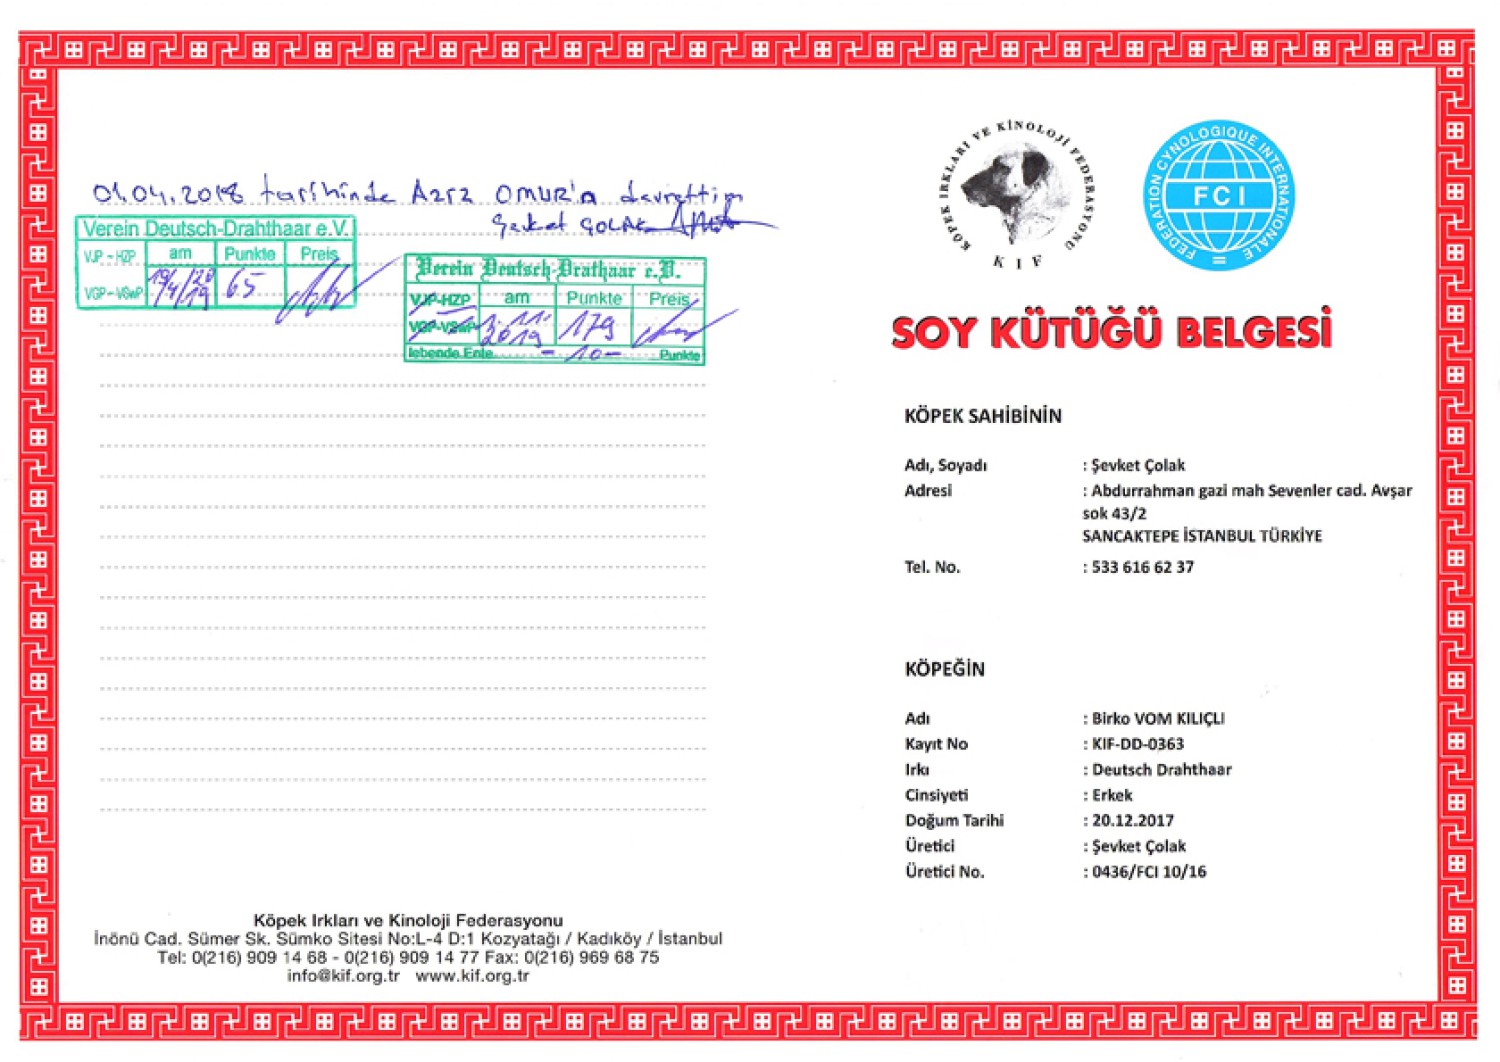 01.04.2018 tarihinde Aziz OMUR'a devrettim
Şevket ÇOLAK
Verein Deutsch-Drahthaar e.V.
VJP - HZP am Punkte Preis
VGP - VSwP 19/4/2019 65
Verein Deutsch-Drathaar e.V.
VJP-HZP am Punkte Preis
VGP-VSwP 3.11.2019 179
lebende Ente -10- Punkte
Köpek Irkları ve Kinoloji Federasyonu
İnönü Cad. Sümer Sk. Sümko Sitesi No:L-4 D:1 Kozyatağı / Kadıköy / İstanbul
Tel: 0(216) 909 14 68 - 0(216) 909 14 77 Fax: 0(216) 969 68 75
info@kif.org.tr www.kif.org.tr
KÖPEK IRKLARI VE KİNOLOJİ FEDERASYONU
KIF
FEDERATION CYNOLOGIQUE INTERNATIONALE
FCI
SOY KÜTÜĞÜ BELGESİ
KÖPEK SAHİBİNİN
Adı, Soyadı : Şevket Çolak
Adresi : Abdurrahman gazi mah Sevenler cad. Avşar
sok 43/2
SANCAKTEPE İSTANBUL TÜRKİYE
Tel. No. : 533 616 62 37
KÖPEĞİN
Adı : Birko VOM KILIÇLI
Kayıt No : KIF-DD-0363
Irkı : Deutsch Drahthaar
Cinsiyeti : Erkek
Doğum Tarihi : 20.12.2017
Üretici : Şevket Çolak
Üretici No. : 0436/FCI 10/16